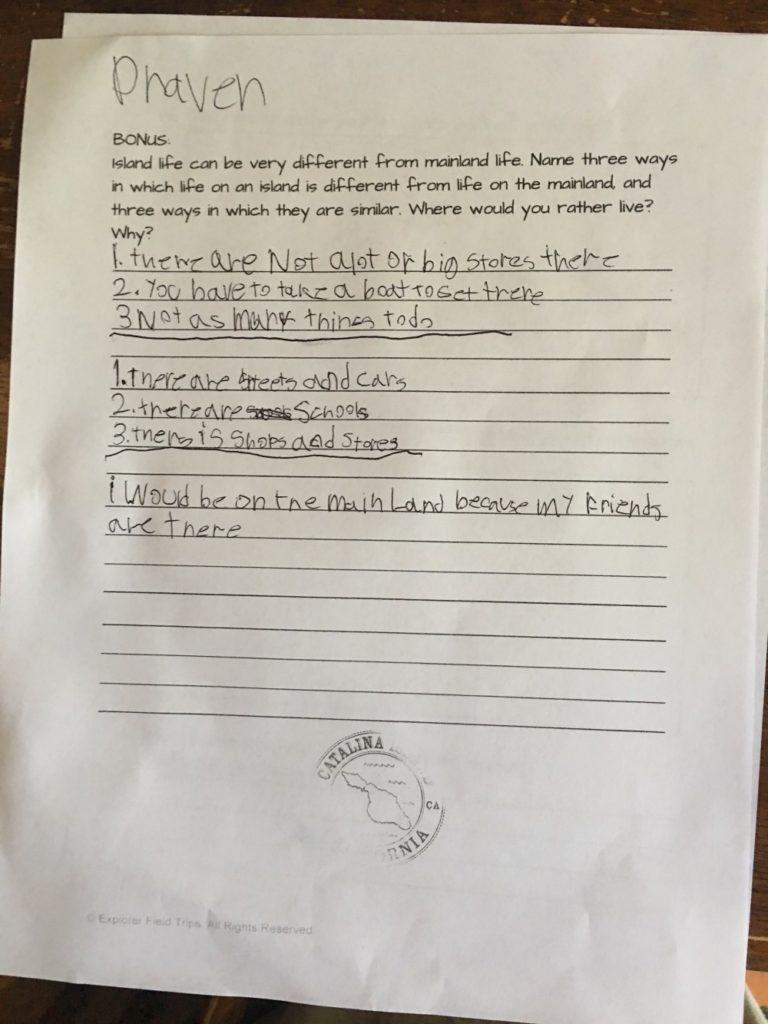 Dhaven
BONUS:
Island life can be very different from mainland life. Name three ways
in which life on an island is different from life on the mainland, and
three ways in which they are similar. Where would you rather live?
Why?
1. there are Not alot of big stores there
2. You have to take a boat to get there
3 Not as many things to do
1. there are streets and cars
2. there are schools
3. there is shops and stores
i Would be on the main Land because my friends
are there
CATALINA
CA
RNIA
© Explorer Field Trips. All Rights Reserved